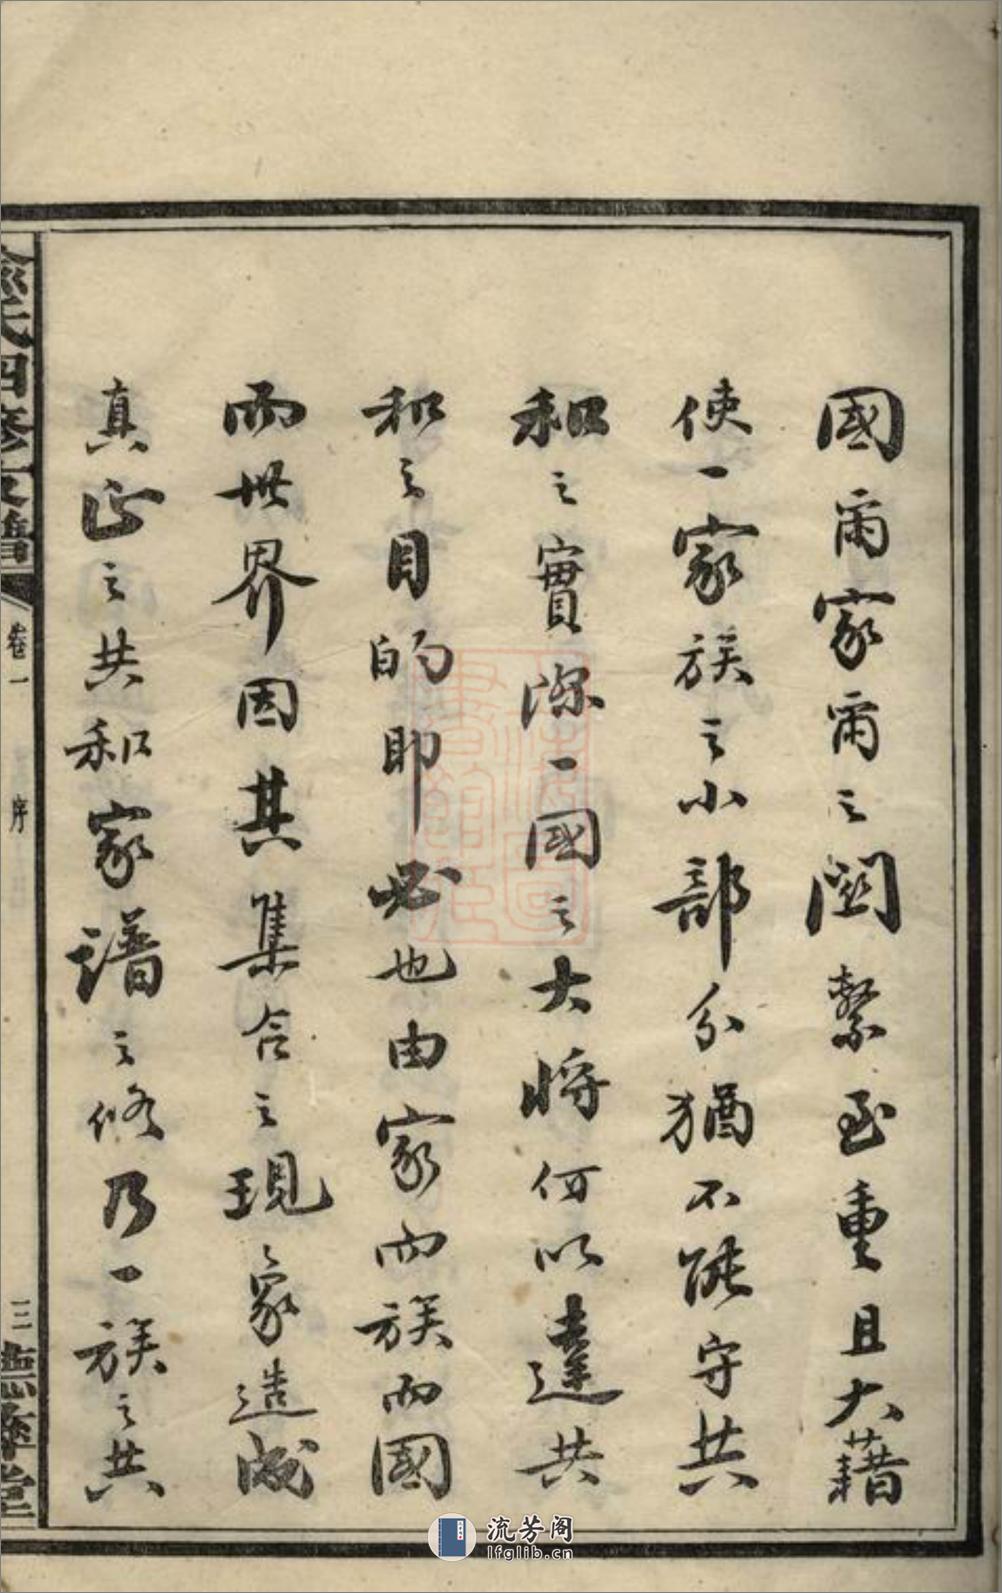 國爾家爾之關繫至重且大藉
使一家族之小部分猶不能守共
和之實際一國之大將何以達共
和之目的即必也由家而族而國
而世界因其集合之現象造成
真正之共和家譜之修乃一族之共
氏四修支譜
卷一
序
三
堂
流芳阁
lfglib.cn